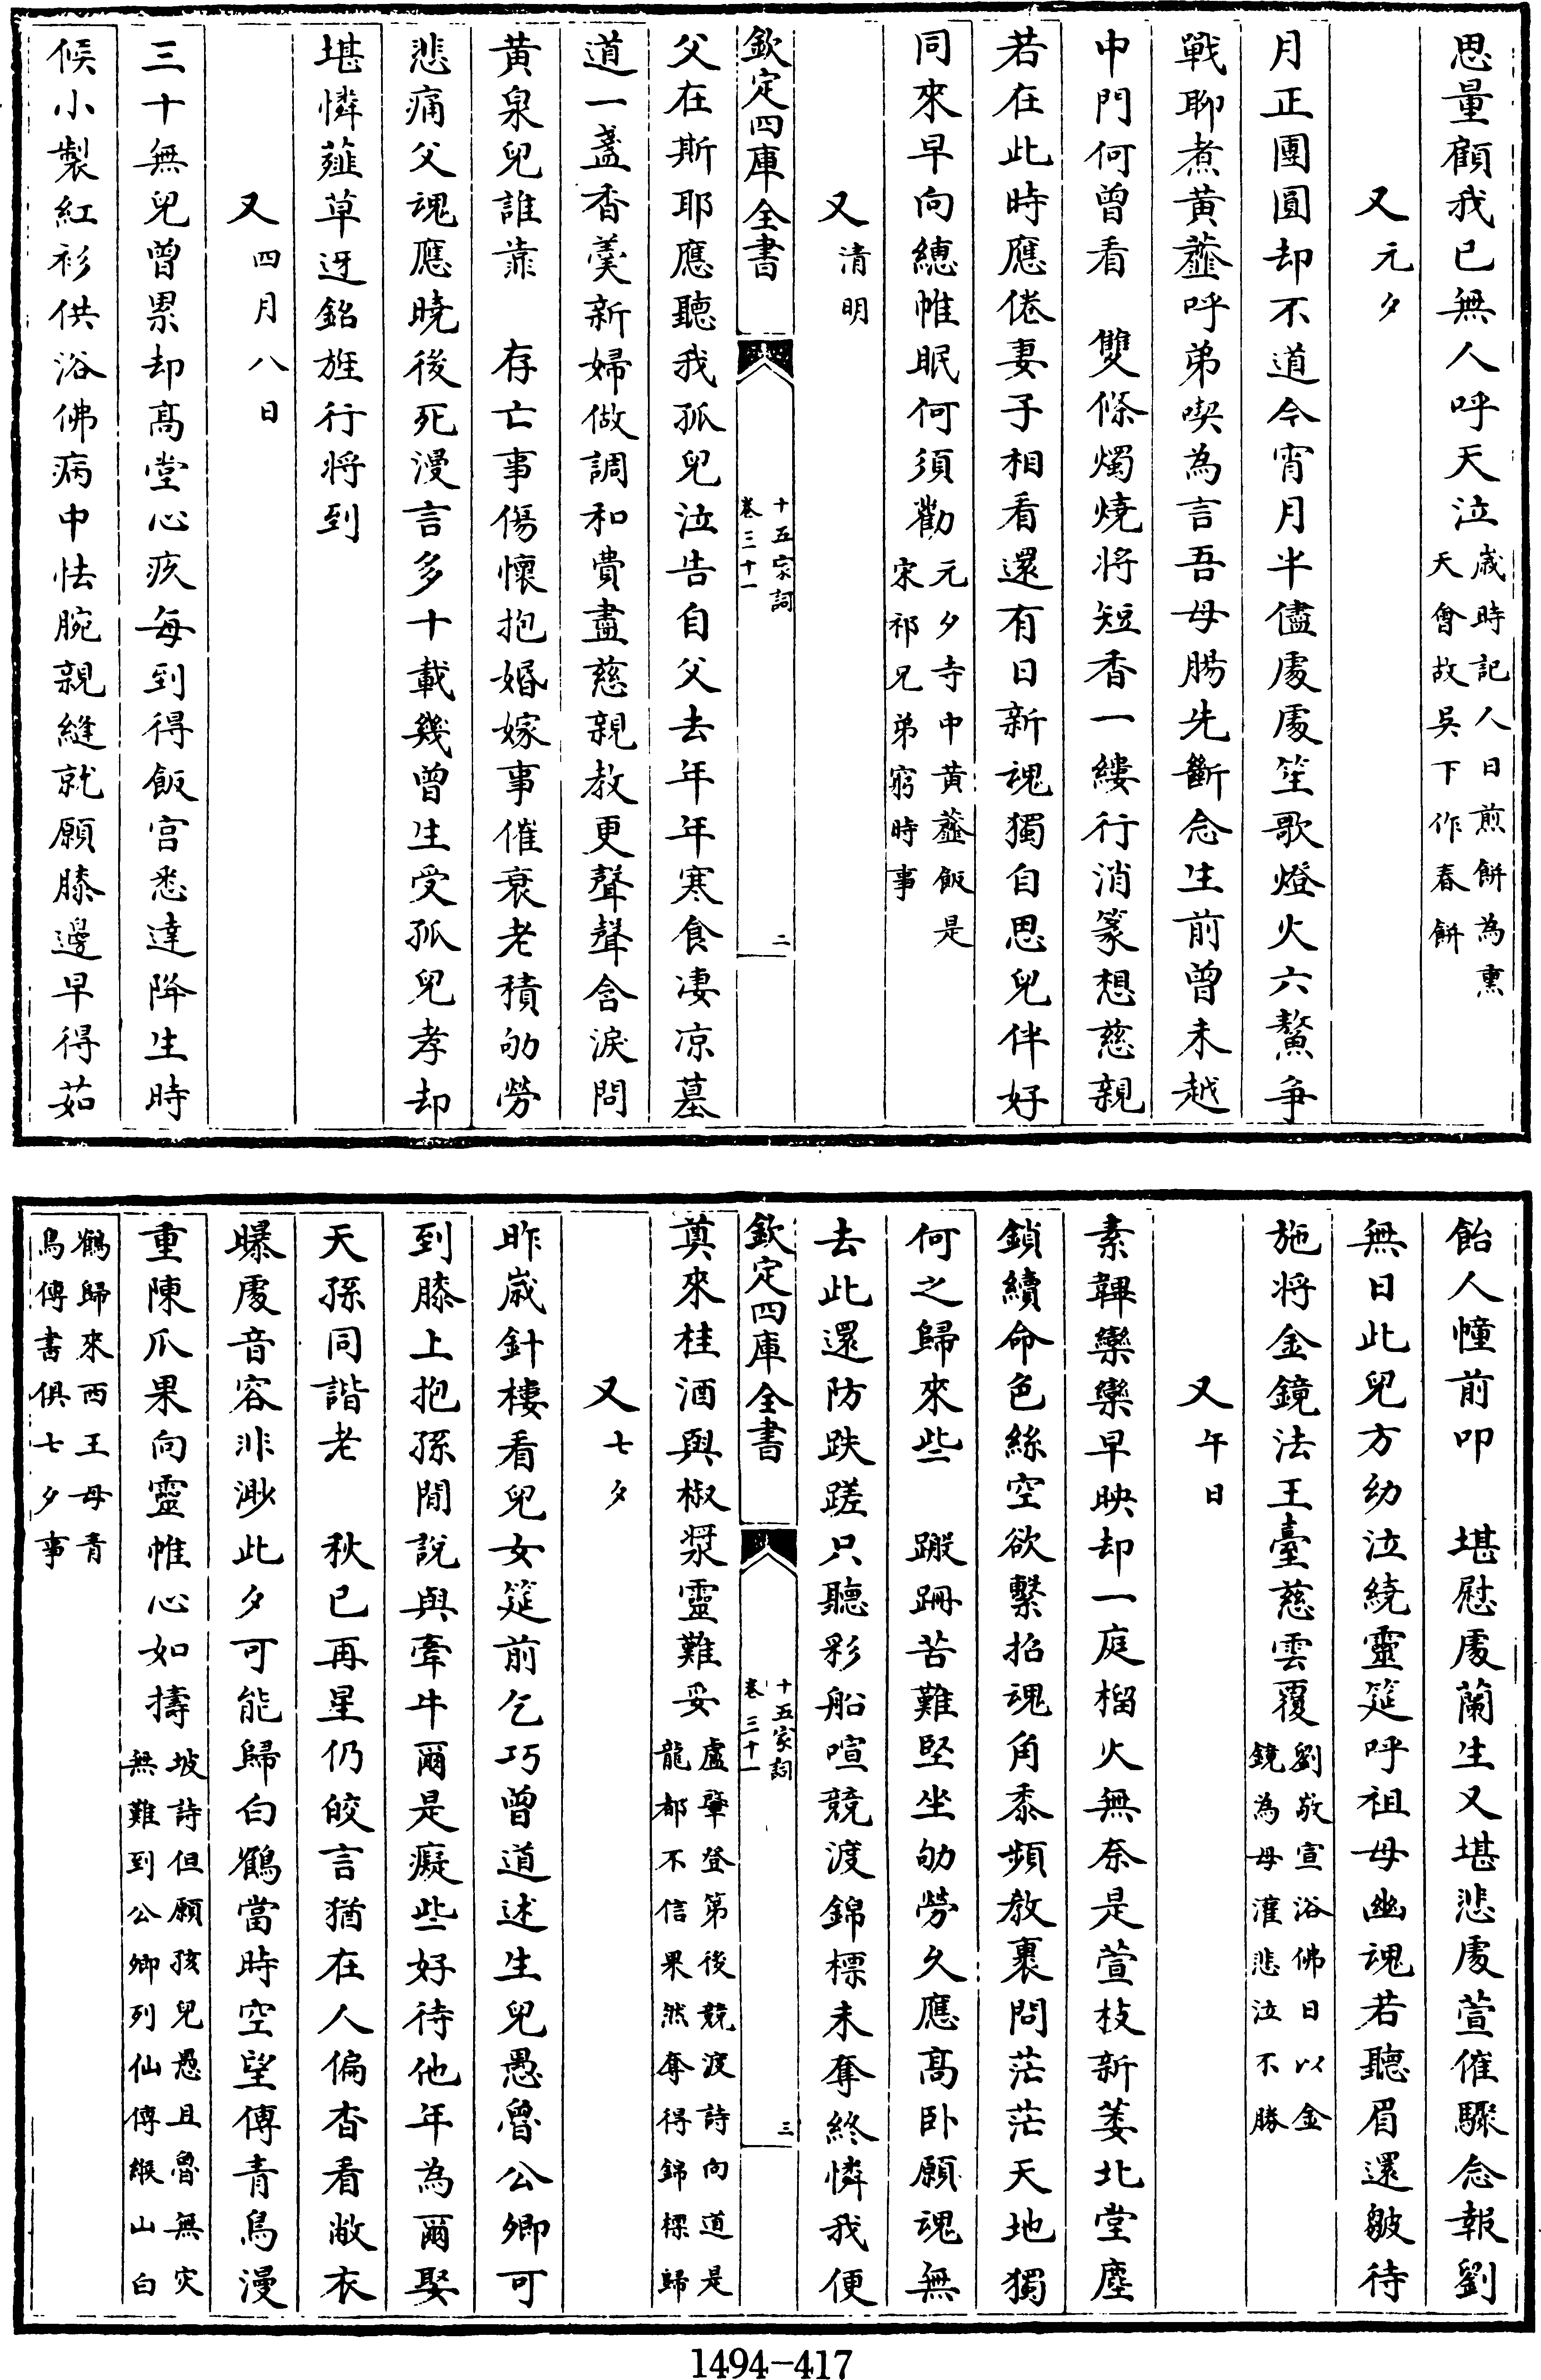 思量顧我已無人呼天泣歳時記人日煎餅為熏
天會故吳下作春餅
又元夕
月正團圓却不道今宵月半儘處處笙歌燈火六鰲爭
戰聊煮黄虀呼弟喫為言吾母腸先斷念生前曾未越
中門何曾看　雙條燭燒將短香一縷行消篆想慈親
若在此時應倦妻子相看還有日新魂獨自思兒伴好
同來早向繐帷眠何須勸元夕寺中黄虀飯是
宋祁兄弟窮時事
又清明
欽定四庫全書
十五家詞
卷三十一
二
父在斯耶應聽我孤兒泣告自父去年年寒食凄凉墓
道一盞香羮新婦做調和費盡慈親教更聲聲含淚問
黄泉兒誰靠　存亡事傷懷抱婚嫁事催衰老積劬勞
悲痛父魂應曉後死漫言多十載幾曾生受孤兒孝却
堪憐薤草迓銘旌行將到
又四月八日
三十無兒曾累却高堂心疚每到得飯宫悉達降生時
候小製紅衫供浴佛病中怯腕親縫就願膝邊早得茹
飴人幢前叩　堪慰處蘭生又堪悲處萱催驟念報劉
無日此兒方幼泣繞靈筵呼祖母幽魂若聽眉還皺待
施將金鏡法王臺慈雲覆劉敬宣浴佛日以金
鏡為母灌悲泣不勝
又午日
素韠欒欒早映却一庭榴火無奈是萱枝新萎北堂塵
鎖續命色絲空欲繫招魂角黍頻教裹問茫茫天地獨
何之歸來些　蹴跚苦難堅坐劬勞久應高卧願魂無
去此還防跌蹉只聽彩船喧競渡錦標未奪終憐我便
欽定四庫全書
十五家詞
卷三十一
三
奠來桂酒與椒漿靈難妥盧肇登第後競渡詩向道是
龍都不信果然奪得錦標歸
又七夕
昨歳針樓看兒女筵前乞巧曾道述生兒愚魯公卿可
到膝上抱孫閒說與牽牛爾是癡些好待他年為爾娶
天孫同諧老　秋已再星仍皎言猶在人偏杳看敝衣
曝處音容非渺此夕可能歸白鶴當時空望傳青鳥漫
重陳爪果向靈帷心如擣坡詩但願孩兒愚且魯無灾
無難到公卿列仙傳緱山白
鶴歸來西王母青
鳥傳書俱七夕事
1494-417